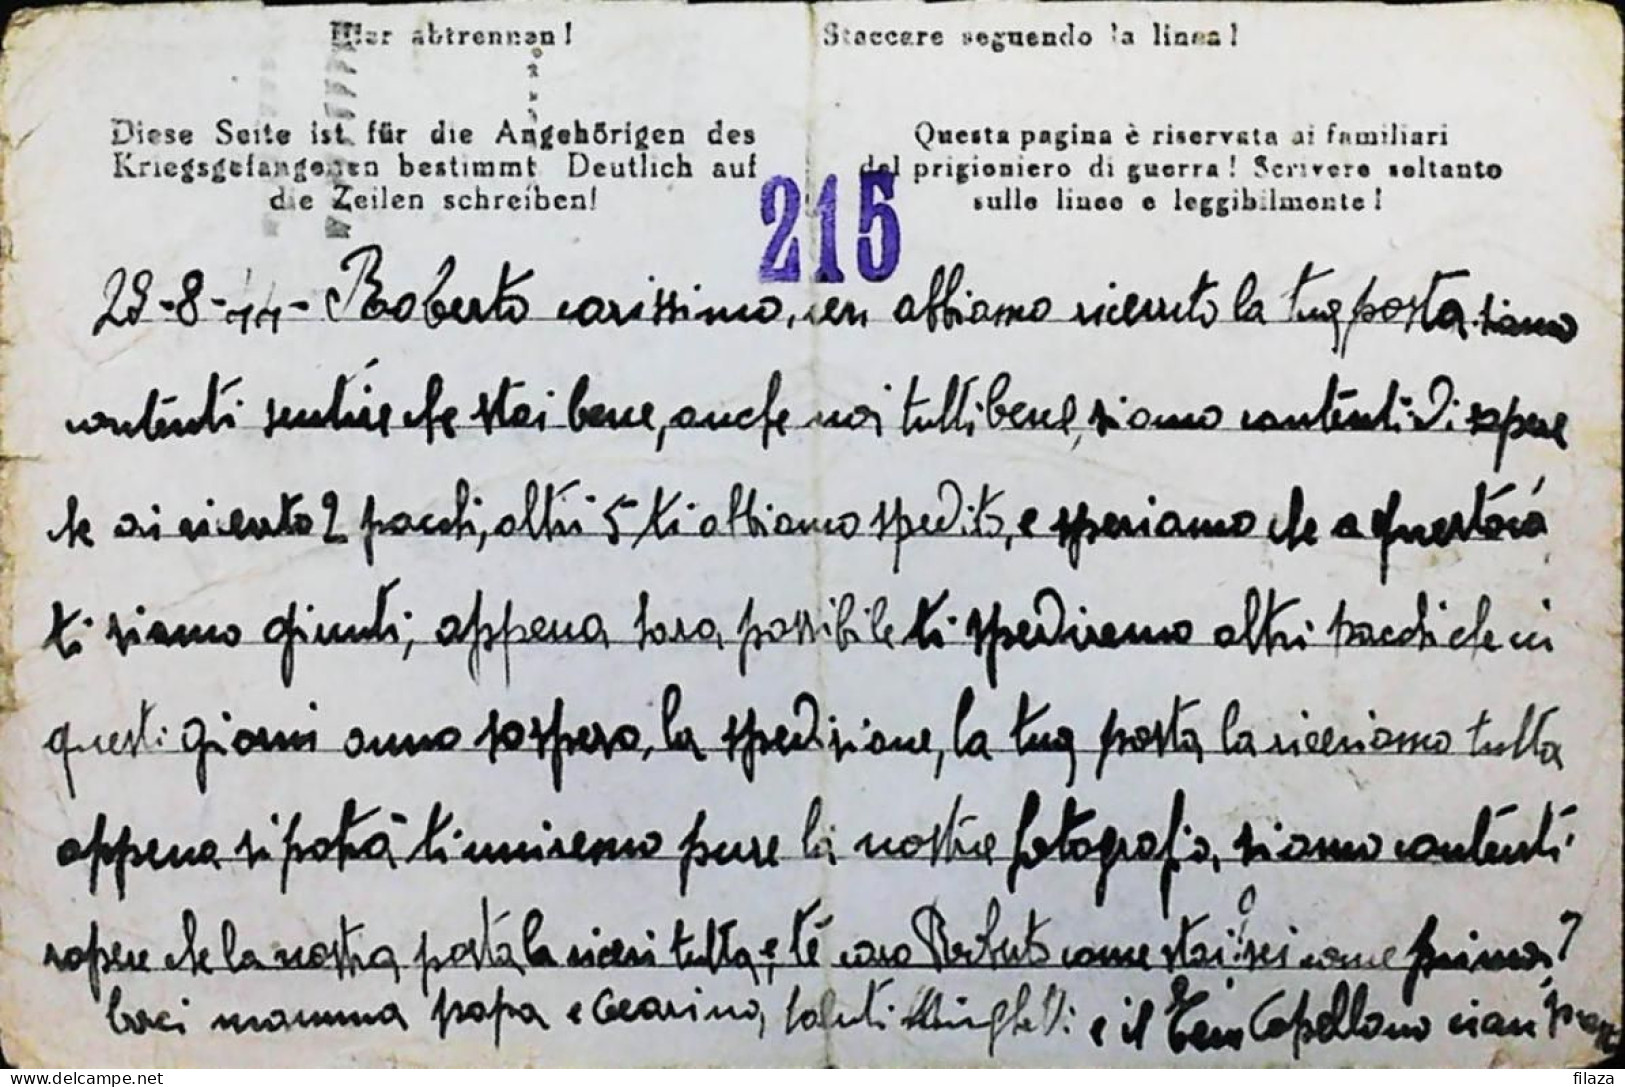 Hier abtrennen!
Staccare seguendo la linea!
Diese Seite ist für die Angehörigen des
Kriegsgefangenen bestimmt Deutlich auf
die Zeilen schreiben!
Questa pagina è riservata ai familiari
del prigioniero di guerra! Scrivere soltanto
sulle linee e leggibilmente!
215
29-8-44- Roberto carissimo, ieri abbiamo ricevuto la tua posta. siamo
contenti sentire che stai bene, anche noi tutti bene, siamo contenti di sapere
che ai ricevuto 2 pacchi, altri 5 ti abbiamo spedito, e speriamo che a quest'ora
ti siano giunti, appena sara possibile ti spediremo altri pacchi che in
questi giorni anno sospeso, la spedizione, la tua posta la riceviamo tutta
appena si potrà ti uniremo pure la nostre fotografia, siamo contenti
sapere che la nostra posta la ricevi tutta, e te caro Roberto come stai? sei come prima?
baci mamma papa e Cesarino, saluti Minghetti e il Ten Cappellano
filaza